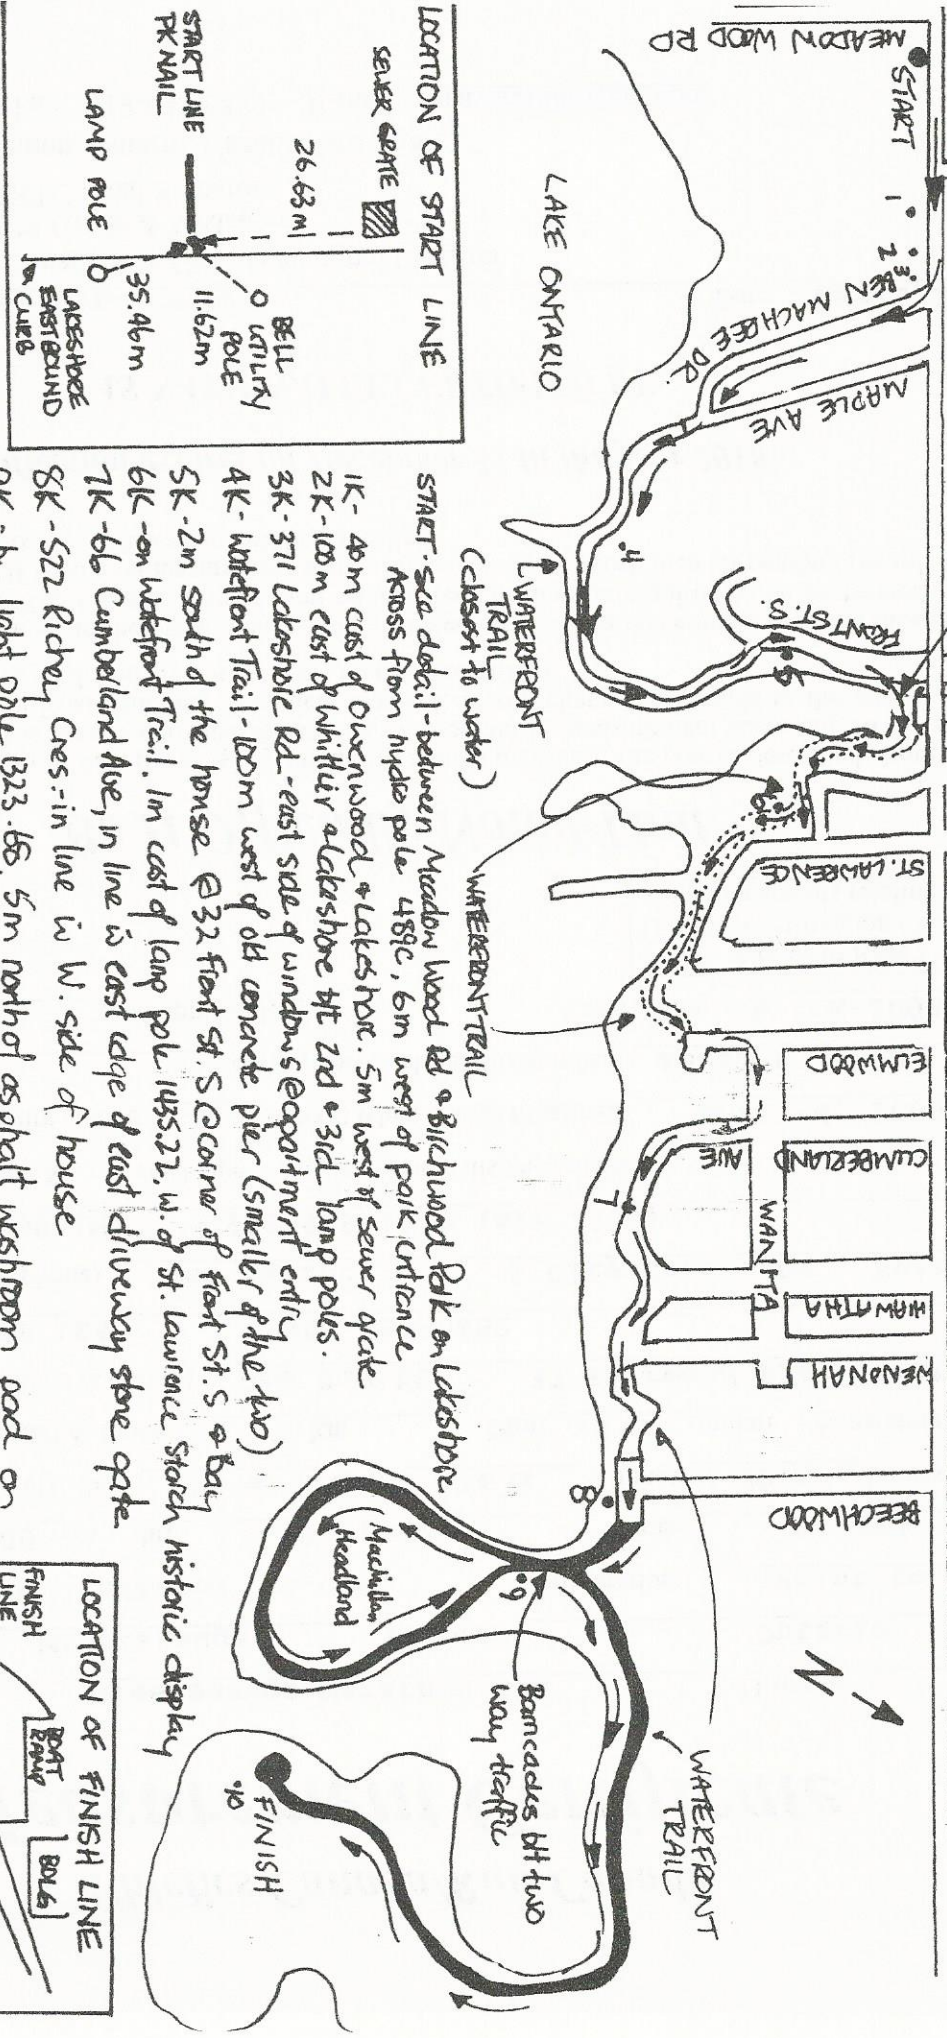 MEADOW WOOD RD
START
1
2
3
BEN MACHREE DR.
MAPLE AVE
LAKE ONTARIO
4
WATERFRONT
TRAIL
(closest to water)
FRONT ST. S.
5
6
ST. LAWRENCE
WATERFRONT TRAIL
ELMWOOD
CUMBERLAND
AVE
WANITA
7
HIAWATHA
WENONAH
BEECHWOOD
8
9
Macmillan
Headland
Barricades b/t two
way traffic
WATERFRONT
TRAIL
N
FINISH
10
LOCATION OF START LINE
SEWER GRATE
26.63m
START LINE
PK NAIL
LAMP POLE
BELL
UTILITY
POLE
11.62m
35.46m
LAKESHORE
EASTBOUND
CURB
START - see detail - between Meadow Wood Rd & Birchwood Park on Lakeshore
Across from hydro pole 489c, 6m west of park entrance
1K - 40m east of Owenwood & Lakeshore. 5m west of sewer grate
2K - 100m east of Whittier & Lakeshore b/t 2nd & 3rd lamp poles.
3K - 371 Lakeshore Rd - east side of windows @ apartment entry
4K - Waterfront Trail - 100m west of old concrete pier (smaller of the two)
5K - 2m south of the house @ 32 Front St. S @ corner of Front St. S & Bay
6K - on Waterfront Trail. 1m east of lamp pole 1435.22. w. of St. Lawrence Starch historic display
7K - 66 Cumberland Ave, in line w east edge of east driveway stone gate
8K - 522 Richey Cres. - in line w W. side of house
light pole 1323.66. 5m north of asphalt washroom pad on
LOCATION OF FINISH LINE
FINISH
LINE
BOAT
RAMP
BDLG